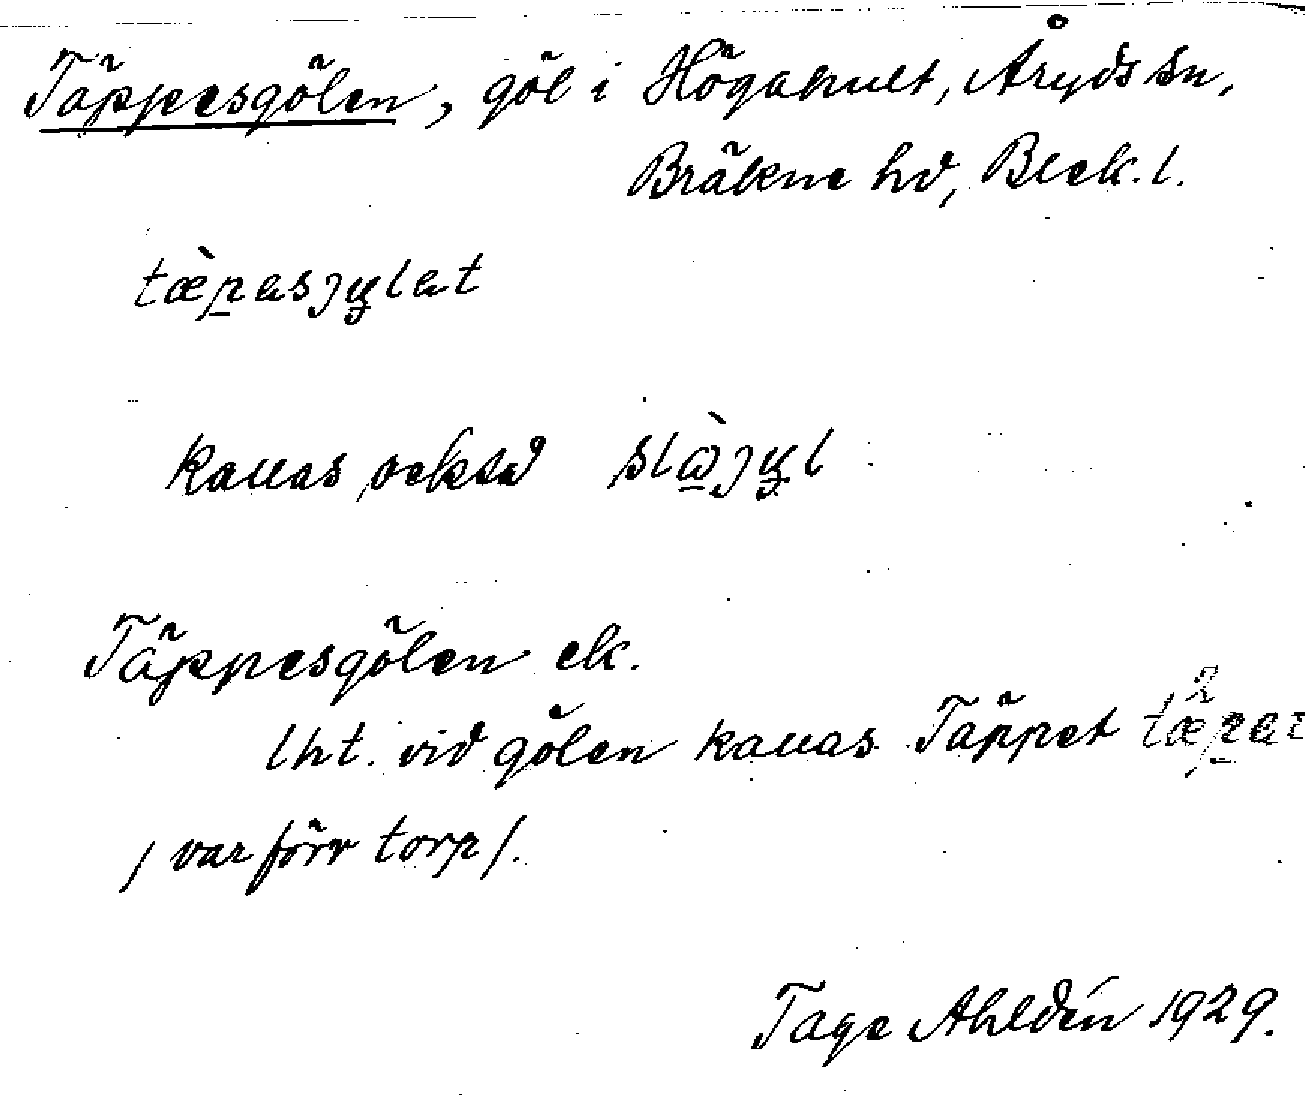 Täppesgölen, göl i Högahult, Åryds sn,
Bräkne hd, Blek. l.
tæ̀pasɟylat
kallas också slàɟyl
Täppesgölen ek.
lht. vid gölen kallas Täppet
/var förr torp/.
Tage Ahldén 1929.